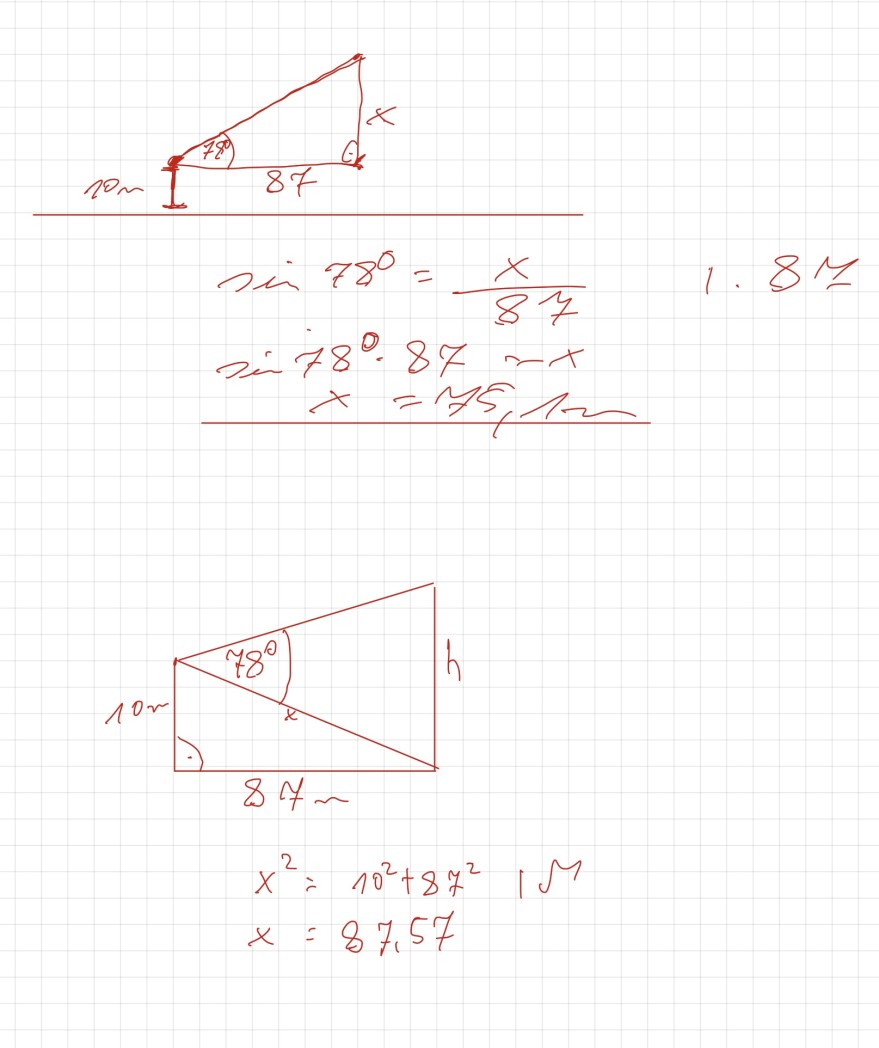 x
78°
10m
87
sin 78° = x / 87 | · 87
sin 78° · 87 = x
x = 75,1m
78°
h
10m
x
87m
x² = 10² + 87² | √
x = 87,57